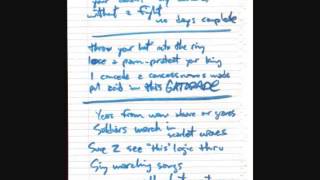 your
without a fight
no days complete
throw your hat into the ring
lose a pawn-protect your king
I concede a concession was made
put acid in this GATORADE
Years from now share or graves
Soldiers march in scarlet waves
Sure 2 see "this" logic thru
Sing marching songs